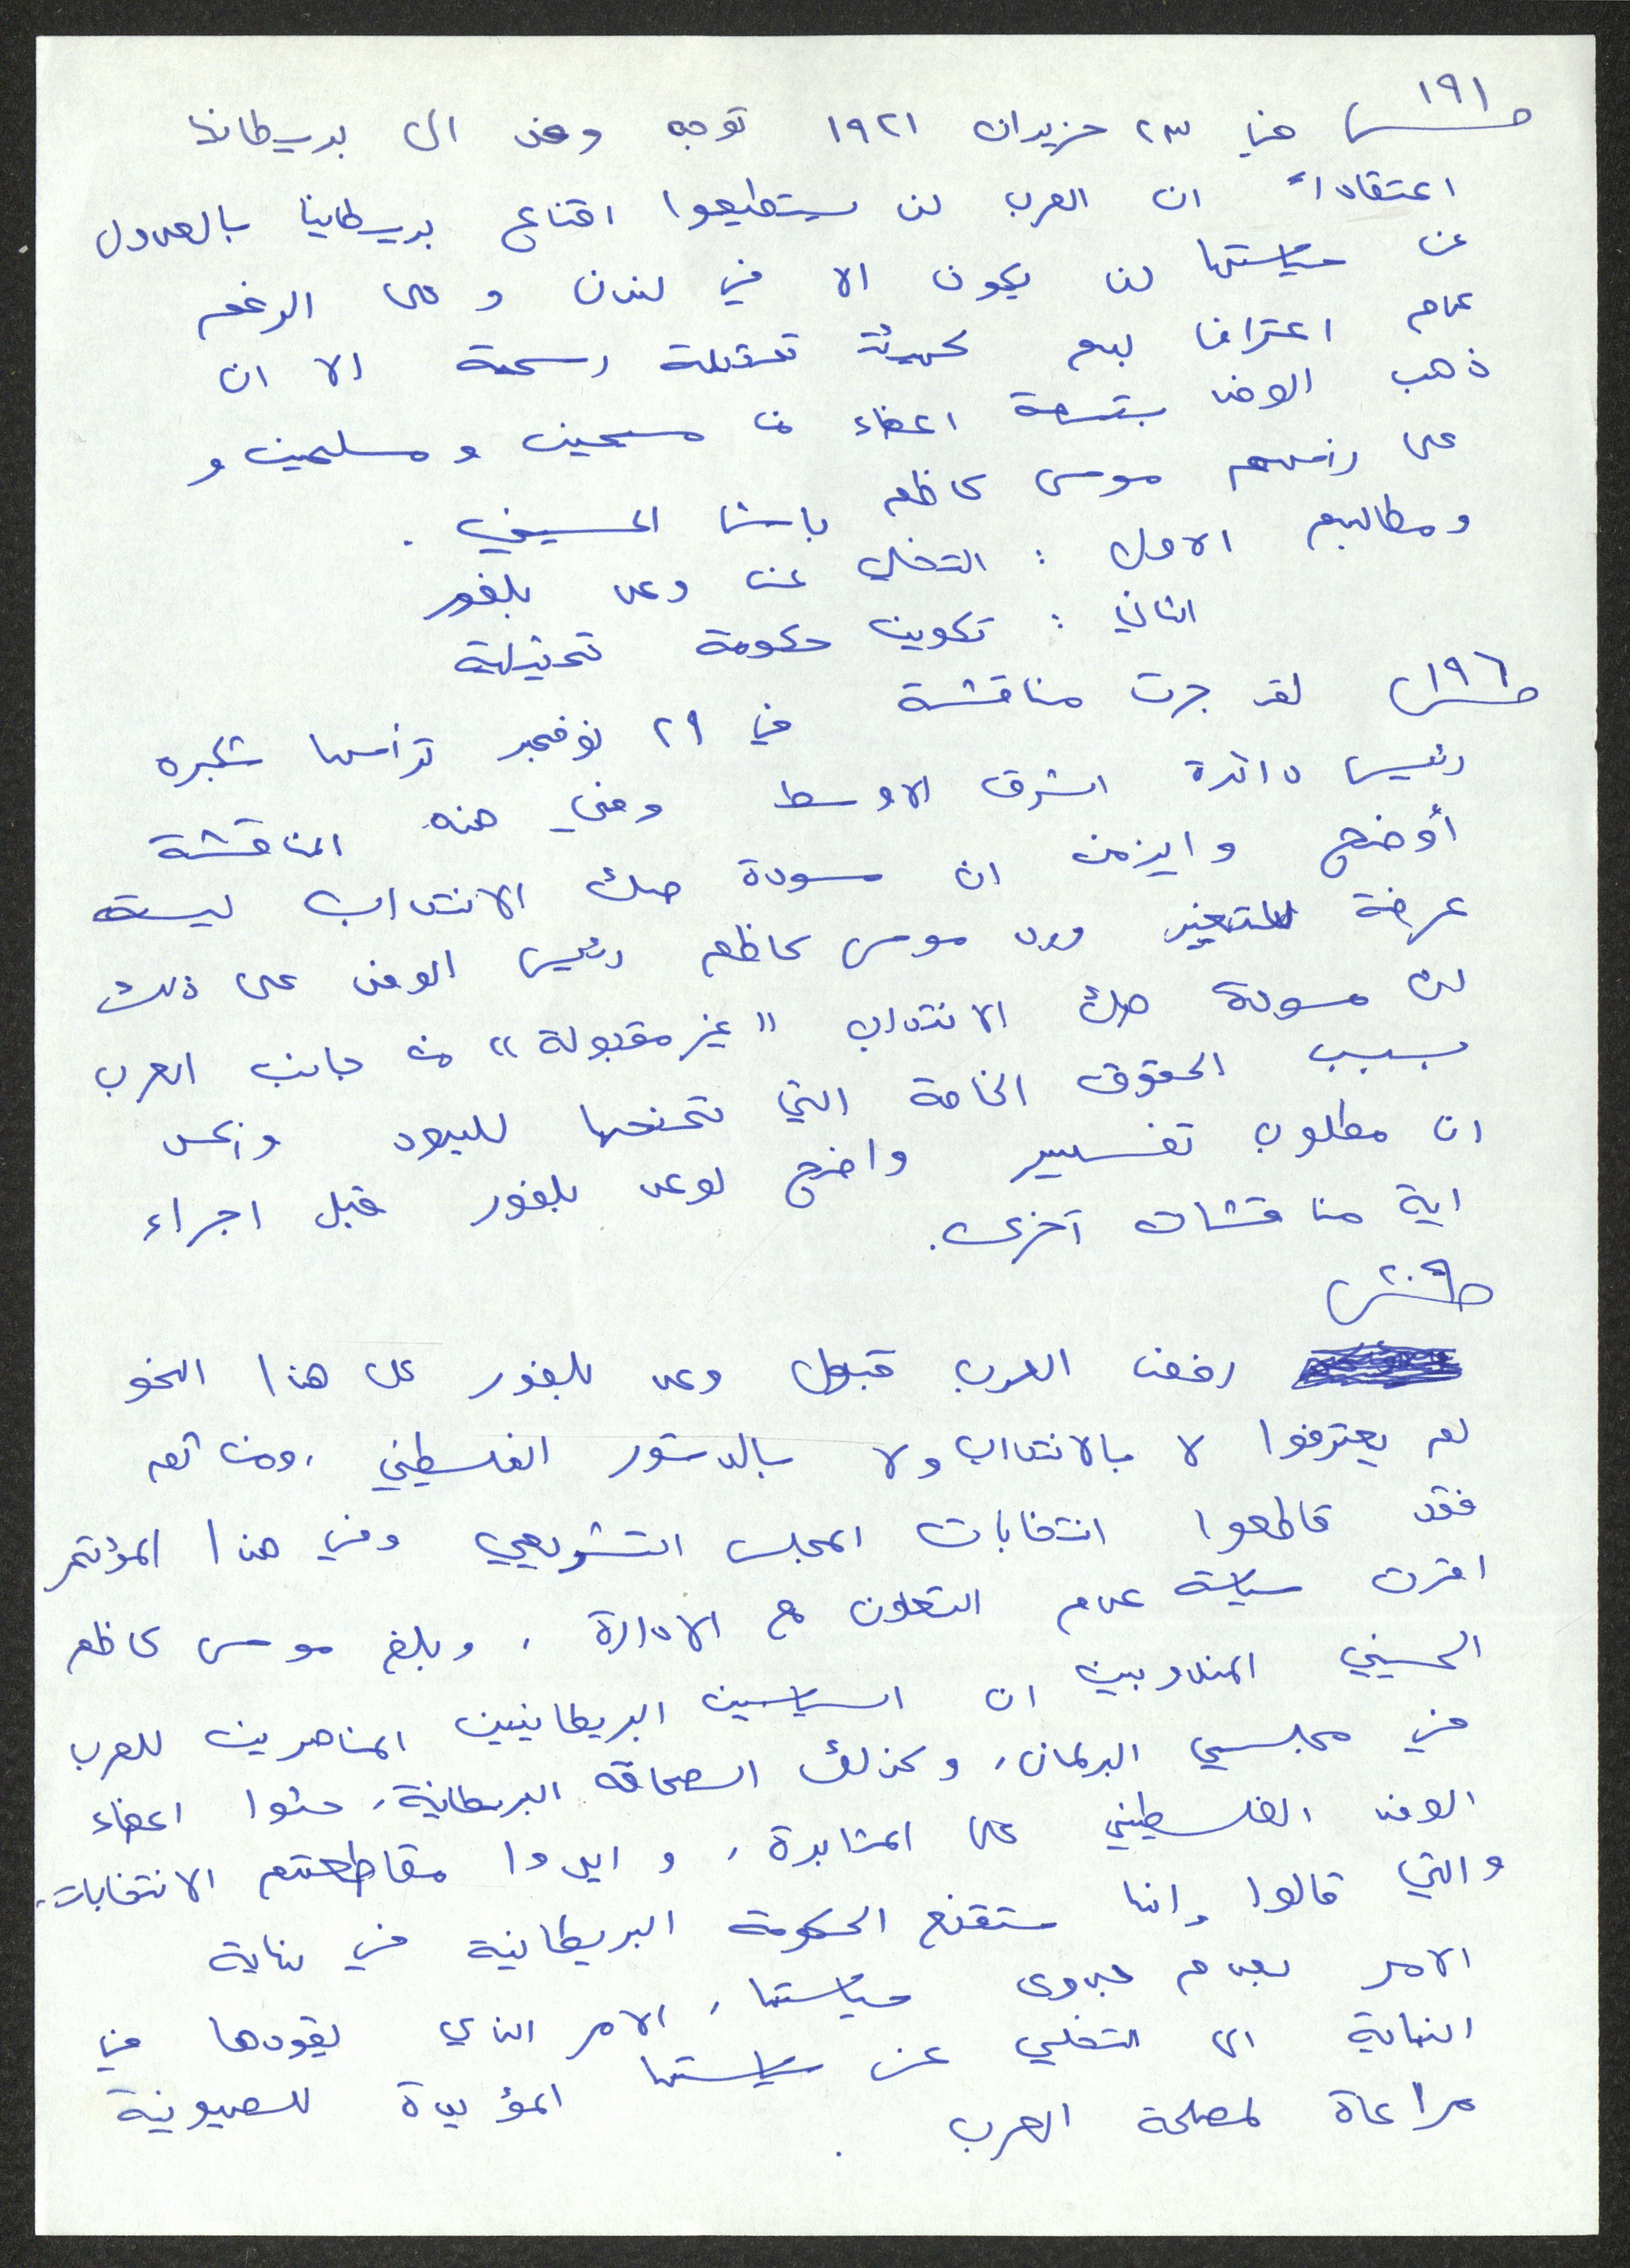 ص ١٩١ في ٢٣ حزيران ١٩٢١ توجه وفد الى بريطانيا
اعتقاداً ان العرب لن يستطيعوا اقناع بريطانيا بالعدول
عن سياستها لن يكون الا في لندن وعلى الرغم
عدم اعتراف بهم كهيئة رسمية الا ان
ذهب الوفد بتسعة اعضاء من مسحين ومسلمين و
على رأسهم موسى كاظم باشا الحسيني .
ومطالبهم الاول : التخلي عن وعد بلفور
الثاني : تكوين حكومة تمثيلية
ص ١٩٦ لقد جرت مناقشة في ٢٩ نوفمبر ترأسها شكبره
رئيس دائرة الشرق الاوسط وفي هذه المناقشة
أوضح وايزمن ان مسودة صك الانتداب ليست
عرضة للتغير ورد موسى كاظم رئيس الوفد على ذلك
لان مسودة صك الانتداب "غير مقبولة" من جانب العرب
بسبب الحقوق الخاصة التي تمنحها لليهود
ان مطلوب تفسير واضح لوعد بلفور قبل اجراء
اية مناقشات آخرى.
ص ٢٠٩
رفض العرب قبول وعد بلفور على هذا النحو
لم يعترفوا لا بالانتداب ولا بالدستور الفلسطيني ، ومن ثم
فقد قاطعوا انتخابات المجلس التشريعي وفي هذا المؤتمر
اقرت سياسة عدم التعاون مع الادارة ، وبلغ موسى كاظم
الحسيني المندوبين ان السياسين البريطانيين المناصرين للعرب
في مجلسي البرلمان، وكذلك الصحافة البريطانية، حثوا اعضاء
الوفد الفلسطيني على المثابرة ، وايدوا مقاطعتهم الانتخابات،
والتي قالوا انها ستقنع الحكومة البريطانية في نهاية
الامر بعدم جدوى سياستها ، الامر الذي يقودها في
النهاية الى التخلي عن سياستها المؤيدة للصهيونية
مراعاة لمصلحة العرب .